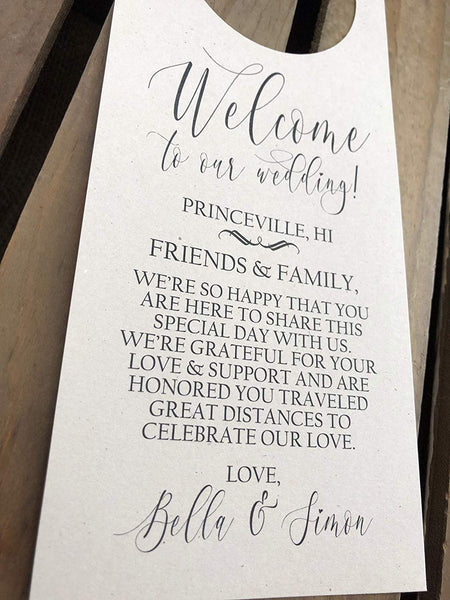 Welcome
to our wedding!
PRINCEVILLE, HI
FRIENDS & FAMILY,
WE'RE SO HAPPY THAT YOU
ARE HERE TO SHARE THIS
SPECIAL DAY WITH US.
WE'RE GRATEFUL FOR YOUR
LOVE & SUPPORT AND ARE
HONORED YOU TRAVELED
GREAT DISTANCES TO
CELEBRATE OUR LOVE.
LOVE,
Bella & Simon